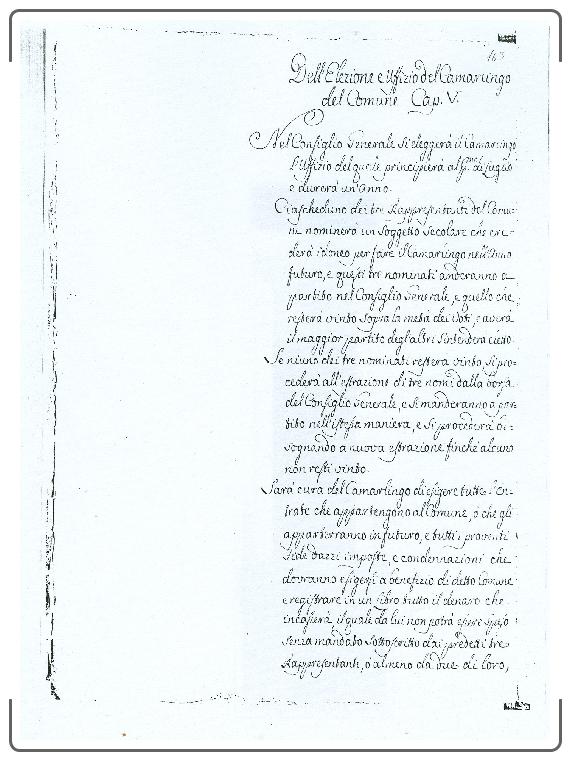 163
Dell'Elezione e Uffizio del Camarlingo
del Comune Cap. V.
Nel Consiglio Generale si eleggerà il Camarlingo
l'Uffizio del quale principierà al p.mo di Luglio
e durerà un'Anno.
Ciascheduno dei tre Rappresentanti del Comu-
ne nominerà un Soggetto Secolare che cre-
derà idoneo per fare il Camarlingo nell'Anno
futuro, e questi tre nominati anderanno a
partito nel Consiglio Generale, e quello che
resterà vinto sopra la metà dei Voti, e averà
il maggior partito degl'altri s'intenderà eletto.
Se niuno dei tre nominati resterà vinto si pro-
cederà all'estrazione di tre nomi dalla borsa
del Consiglio Generale, e si manderanno a par-
tito nell'istessa maniera, e si procederà bi-
sognando a nuova estrazione finchè alcuno
non resti vinto.
Sarà cura del Camarlingo di esigere tutte l'En-
trate che appartengono al Comune, o che gli
apparterranno in futuro, e tutti i proventi
dazzi imposte, e condennazioni che
dovranno esigersi a benefizio di detto Comune
e registrare in un libro tutto il denaro che
incasserà, il quale da lui non potrà essere speso
senza mandato sottoscritto dai predetti tre
Rappresentanti, o almeno da due di loro,